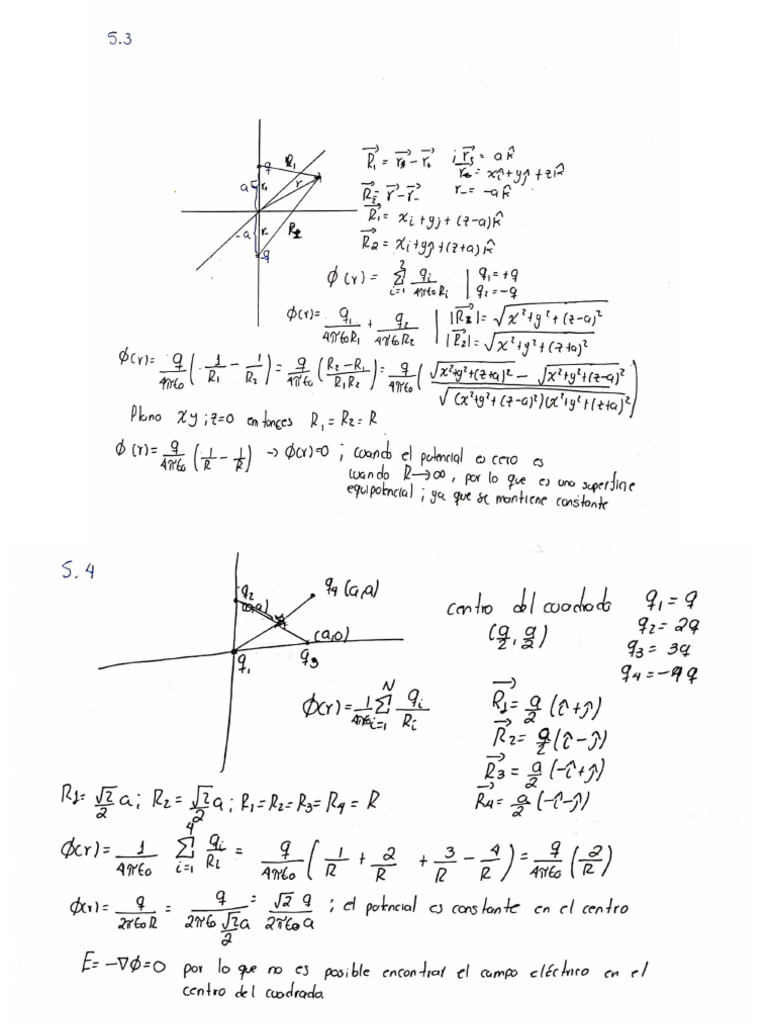 5.3
R₁ = r₃ - r₊ ; r₃ = a k̂
r = x î + y ĵ + z k̂
R₂ = r - r₋ r₋ = -a k̂
R₁ = x i + y j + (z-a) k̂
R₂ = x i + y ĵ + (z+a) k̂
q R₁
a r₊ r
-a r₋ R₂
q
ϕ(r) = Σ_{i=1}^{2} qᵢ/(4πε₀Rᵢ) | q₁ = +q
q₂ = -q
ϕ(r) = q₁/(4πε₀R₁) + q₂/(4πε₀R₂) | |R₁| = √(x²+y²+(z-a)²)
|R₂| = √(x²+y²+(z+a)²)
ϕ(r) = q/(4πε₀) (1/R₁ - 1/R₂) = q/(4πε₀) ((R₂-R₁)/(R₁R₂)) = q/(4πε₀) ((√(x²+y²+(z+a)²) - √(x²+y²+(z-a)²))/√((x²+y²+(z-a)²)(x²+y²+(z+a)²)))
Plano xy ; z=0 entonces R₁ = R₂ = R
ϕ(r) = q/(4πε₀) (1/R - 1/R) → ϕ(r)=0 ; cuando el potencial es cero es
cuando R→∞, por lo que es una superfine
equipotencial ; ya que se mantiene constante
5.4
q₂ (0,a) q₄ (a,a)
(a,0)
q₁ q₃
centro del cuadrado q₁ = q
(a/2, a/2) q₂ = 2q
q₃ = 3q
q₄ = -4q
ϕ(r) = 1/(4πε₀) Σ_{i=1}^{N} qᵢ/Rᵢ R₁ = a/2 (î + ĵ)
R₂ = a/2 (î - ĵ)
R₃ = a/2 (-î + ĵ)
R₄ = a/2 (-î - ĵ)
R₁ = √2/2 a ; R₂ = √2/2 a ; R₁ = R₂ = R₃ = R₄ = R
ϕ(r) = 1/(4πε₀) Σ_{i=1}^{4} qᵢ/Rᵢ = q/(4πε₀) (1/R + 2/R + 3/R - 4/R) = q/(4πε₀) (2/R)
ϕ(r) = q/(2πε₀R) = q/(2πε₀ √2/2 a) = √2 q/(2πε₀ a) ; el potencial es constante en el centro
E = -∇ϕ = 0 por lo que no es posible encontrar el campo eléctrico en el
centro del cuadrado.